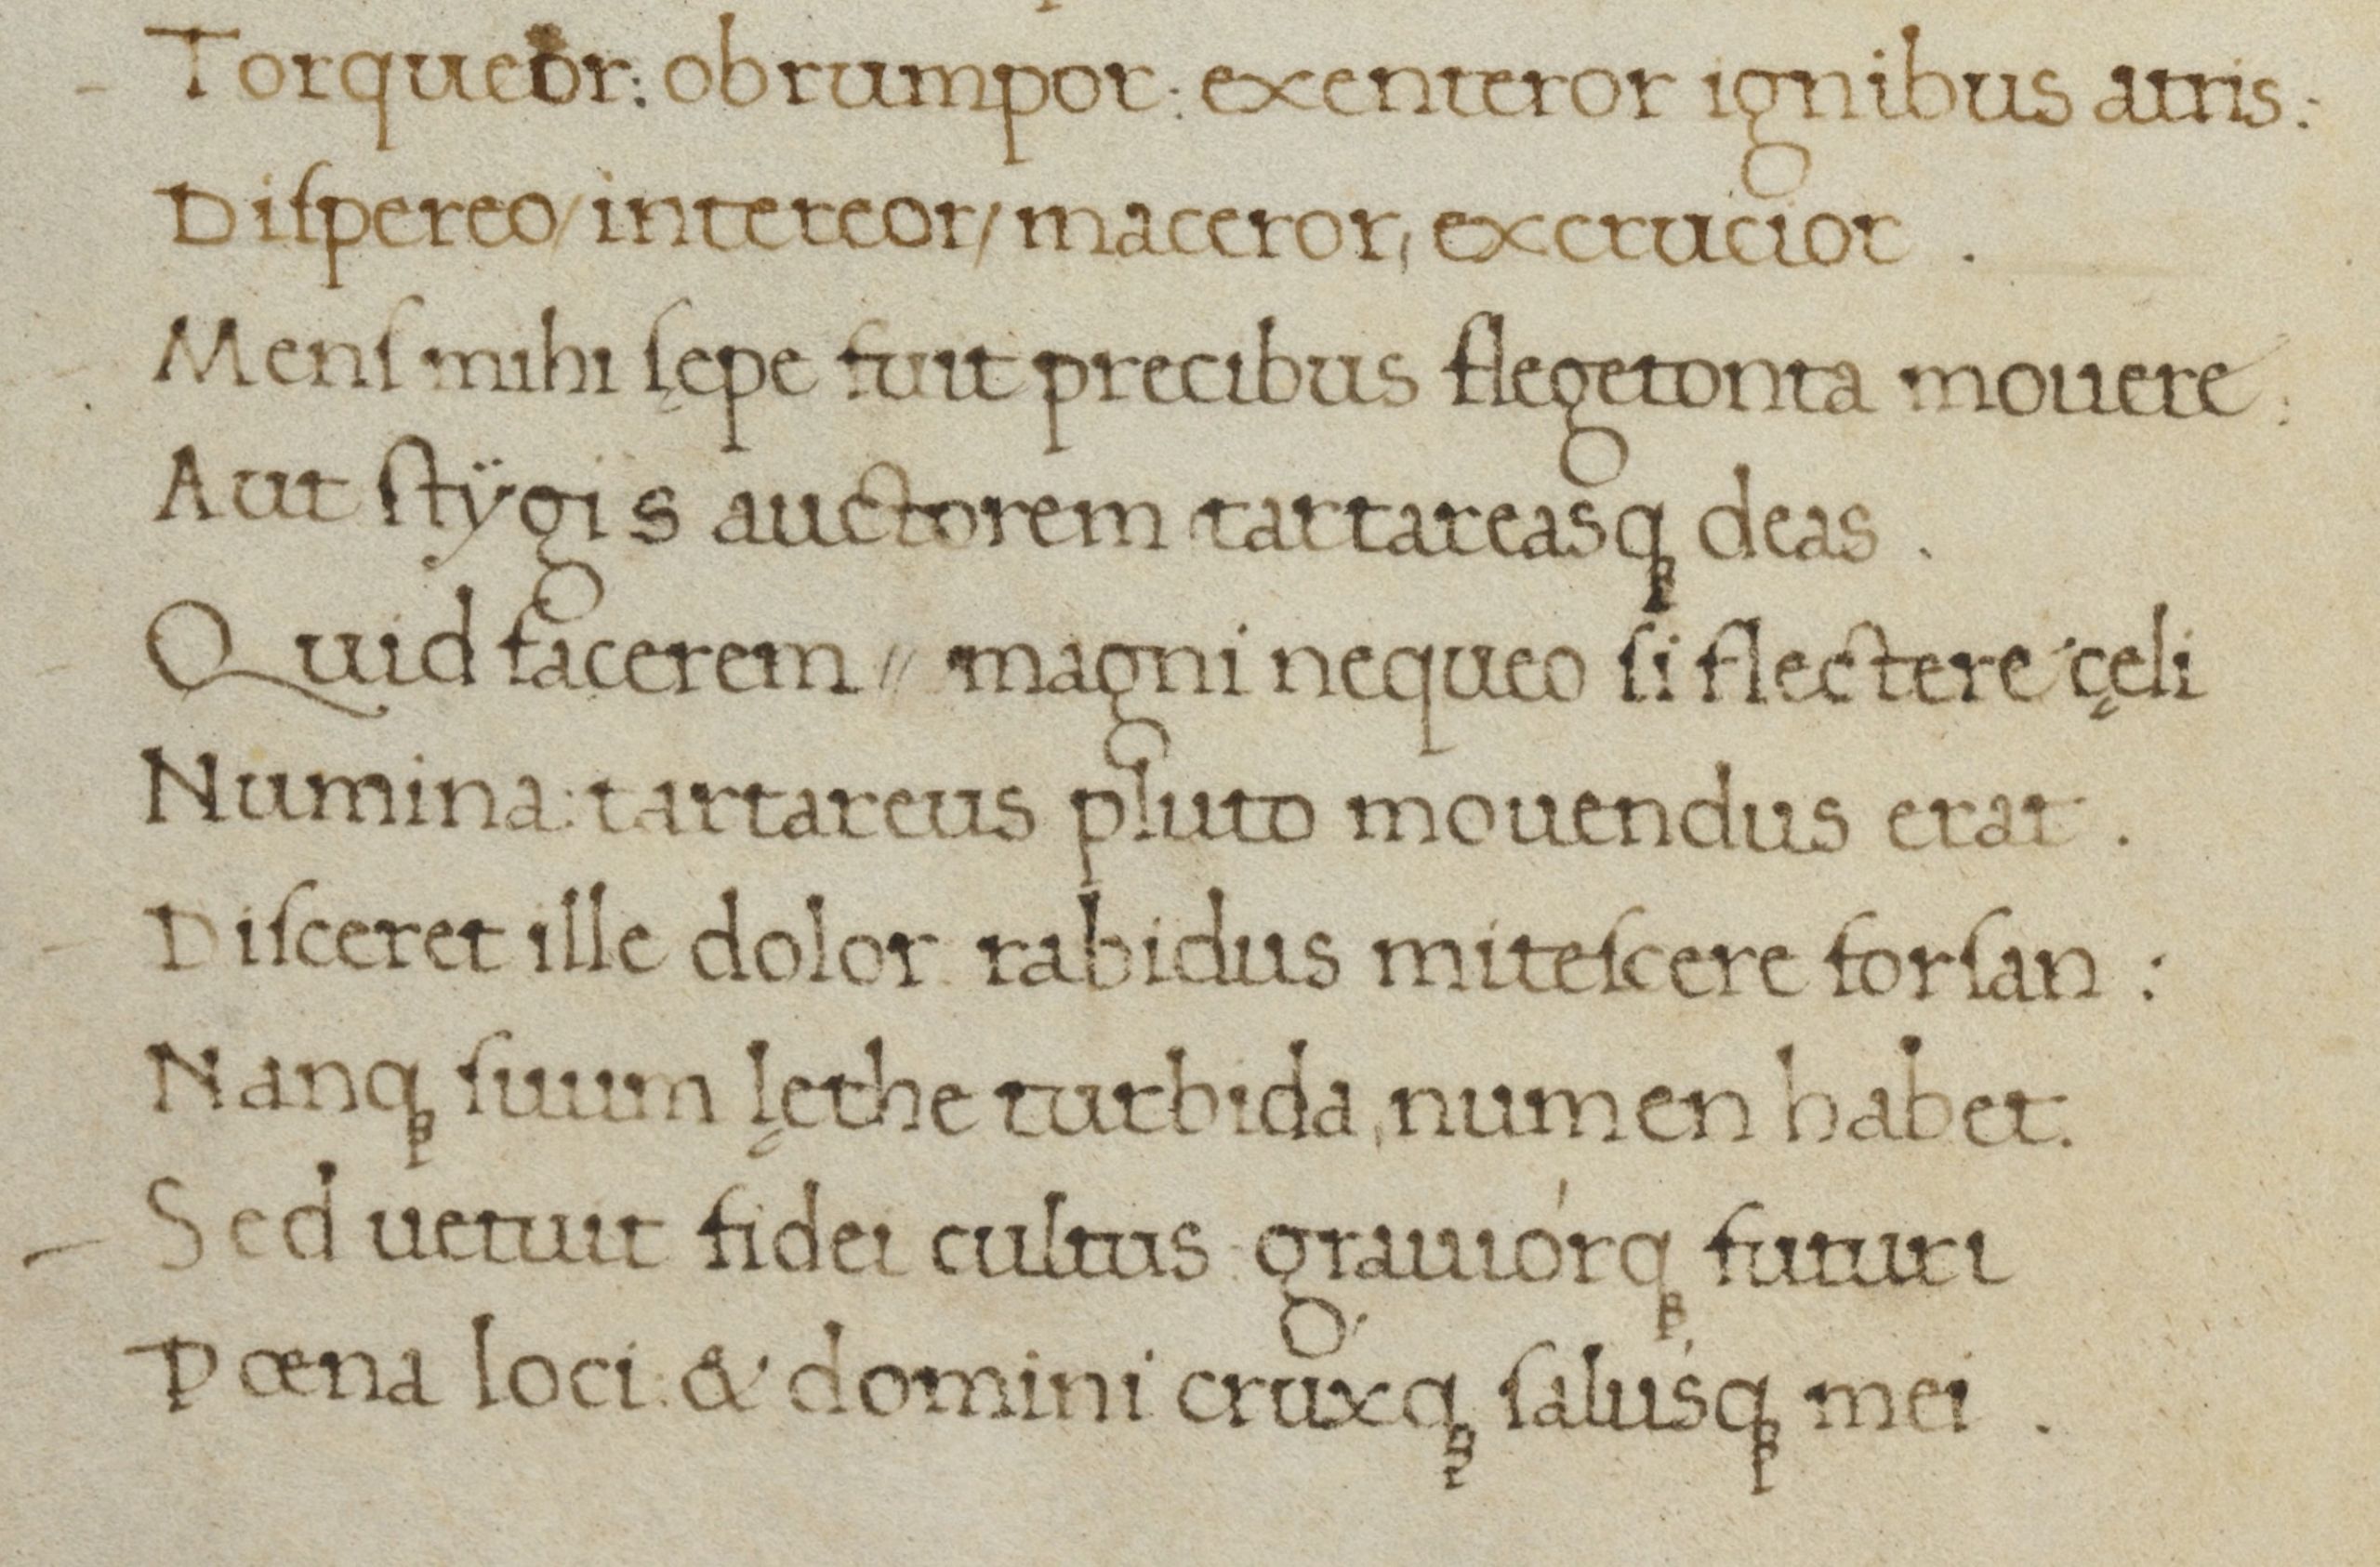 Torqueor: obrumpor: exenteror ignibus atris:
Diſpereo/ intereor/ maceror, excrucior .
Menſ mihi ſępe fuit precibus flegetonta mouere:
Aut ſtÿgis auctorem tartareasqꝫ deas .
Quid facerem // magni nequeo ſi flectere cęli
Numina: tartareus pluto mouendus erat .
Diſceret ille dolor rabidus miteſcere forſan :
Nanqꝫ ſuum lęthe turbida, numen habet.
Sed uetuit fidei cultus grauiórqꝫ futuri
Pœna loci: & domini cruxqꝫ ſalúsqꝫ mei .